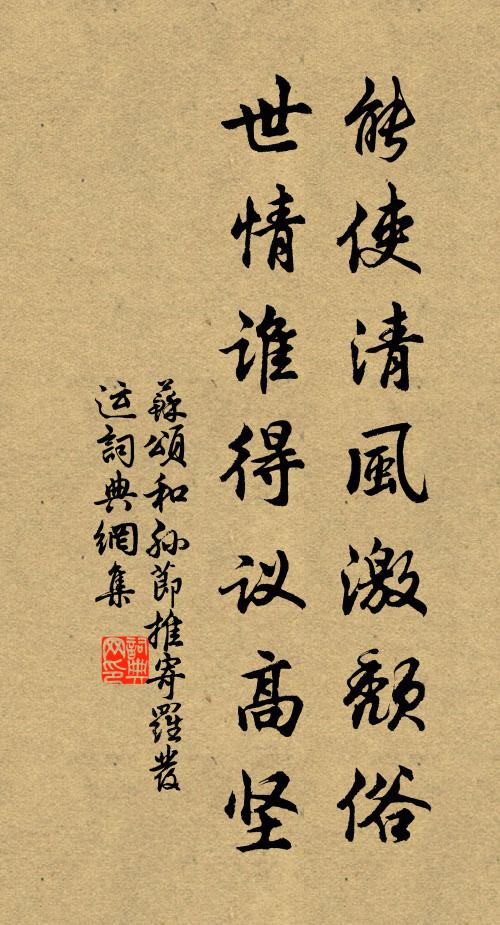 能使清風激頹俗
世情谁得议高坚
蘇頌和孙節推寄羅發
运詞典網集
詞典
网印